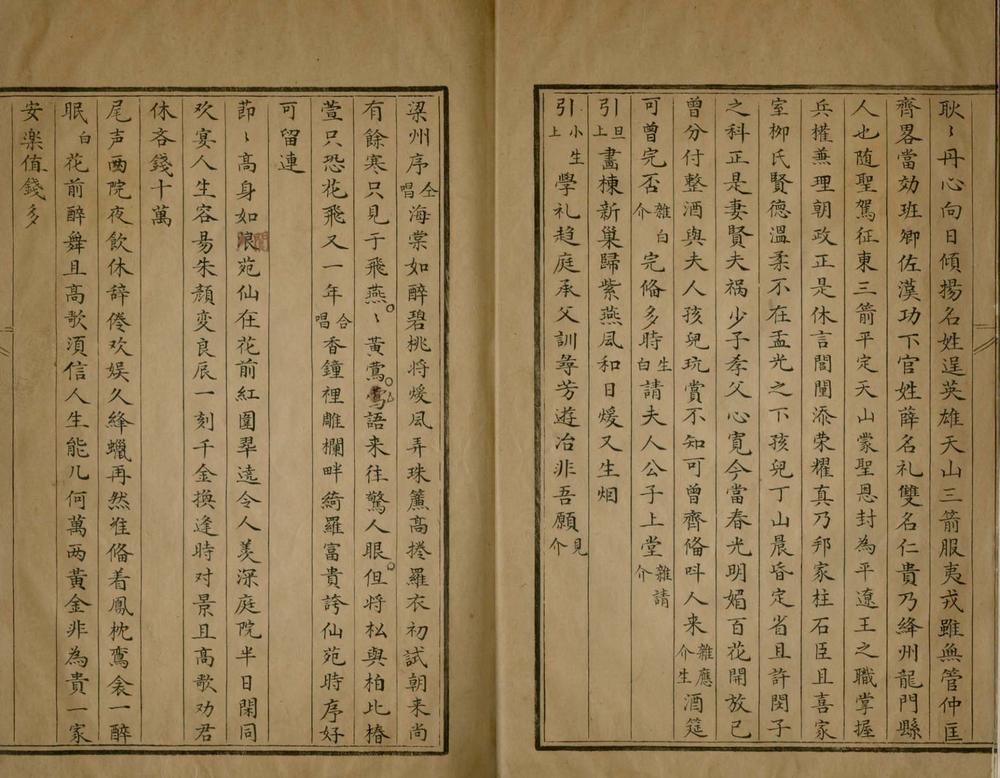 耿〻丹心向日傾揚名姓逞英雄天山三箭服夷戎雖無管仲匡
齊畧當効班卿佐漢功下官姓薛名礼雙名仁貴乃絳州龍門縣
人也随聖駕征東三箭平定天山蒙聖恩封為平遼王之職掌握
兵權兼理朝政正是休言閥閱添荣耀真乃邦家柱石臣且喜家
室栁氏賢德溫柔不在孟光之下孩兒丁山晨昏定省且許閔子
之科正是妻賢夫禍少子孝父心寬今當春光明媚百花開放已
曾分付整酒與夫人孩兒玩賞不知可曾齊俻呌人来雜應介生酒筵
可曾完否雜白介完俻多時生白請夫人公子上堂雜請介
引旦上畫棟新巢歸紫燕風和日煖又生烟
引小生上學礼趋庭承父訓尋芳遊冶非吾願見介
梁州序仝唱海棠如醉碧桃将煖風弄珠簾高捲羅衣初試朝来尚
有餘寒只見于飛燕〻黃鶯語来往驚人眼但将松與柏比椿
萱只恐花飛又一年合唱香鐘裡雕欄畔綺羅富貴誇仙苑時序好
可留連
莭〻高身如閬苑仙在花前紅圍翠遶令人羡深庭院半日閑同
欢宴人生容昜朱顏变良辰一刻千金換逢時对景且高歌劝君
休吝錢十萬
尾声两院夜飲休辞倦欢娱久絳蠟再然准俻着鳳枕鸾衾一醉
眠白花前醉舞且高歌湏信人生能几何萬两黃金非為貴一家
安楽值錢多